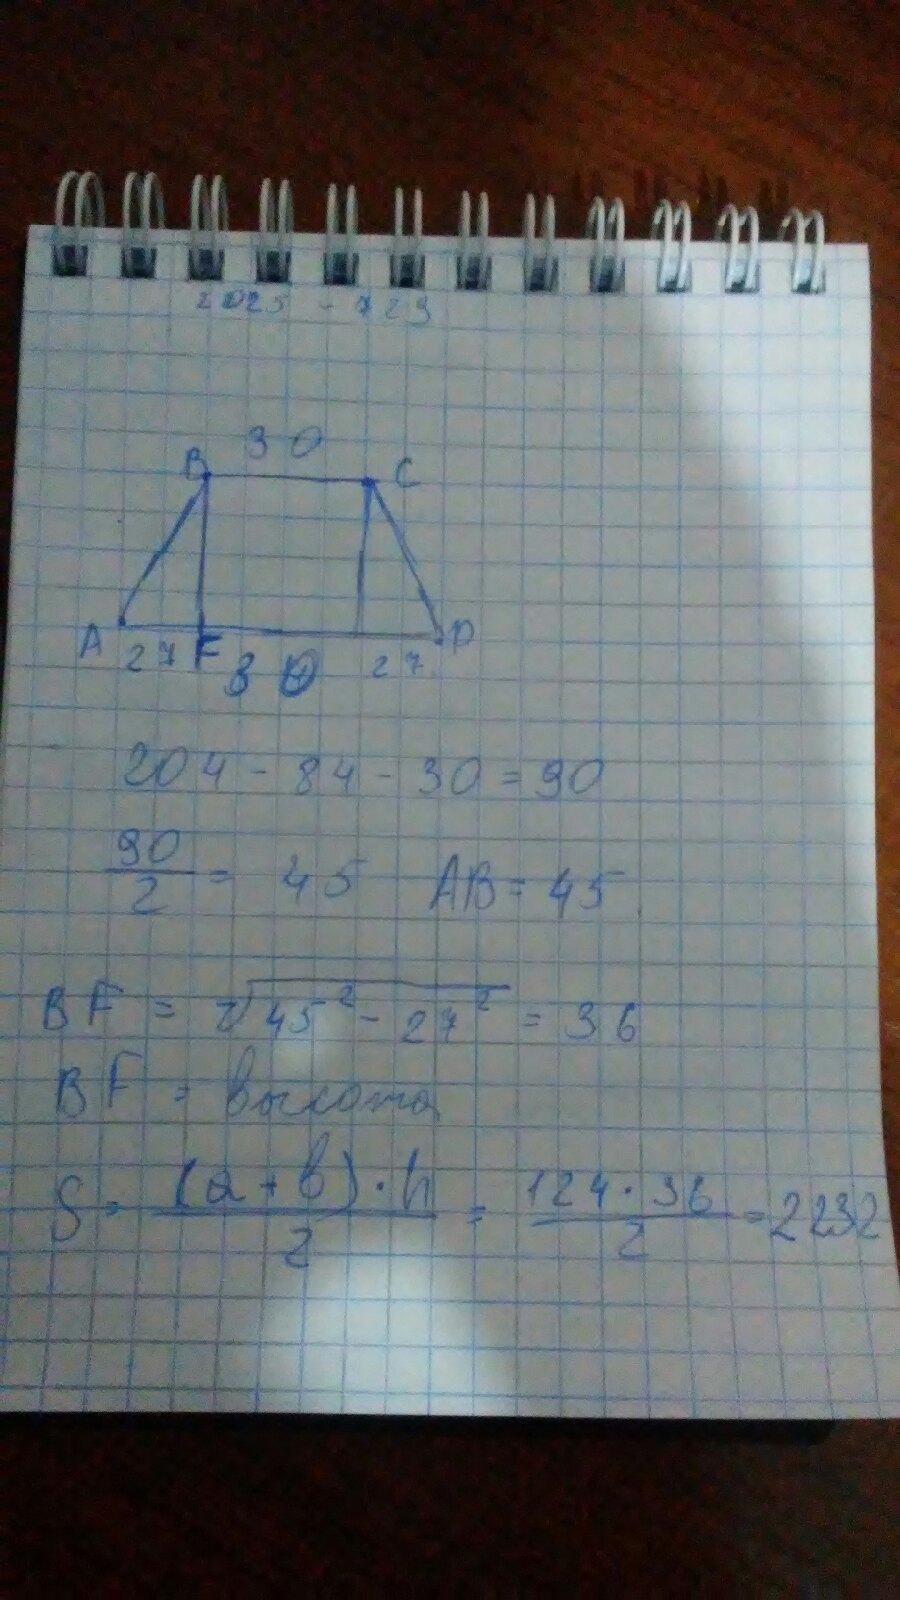 2025 - 723
30
B C
A 27 F 30 27 D
204 - 84 - 30 = 90
90/2 = 45 AB = 45
BF = √45² - 27² = 36
BF = высота
S = (a + b) · h / 2 = 124 · 36 / 2 = 2232